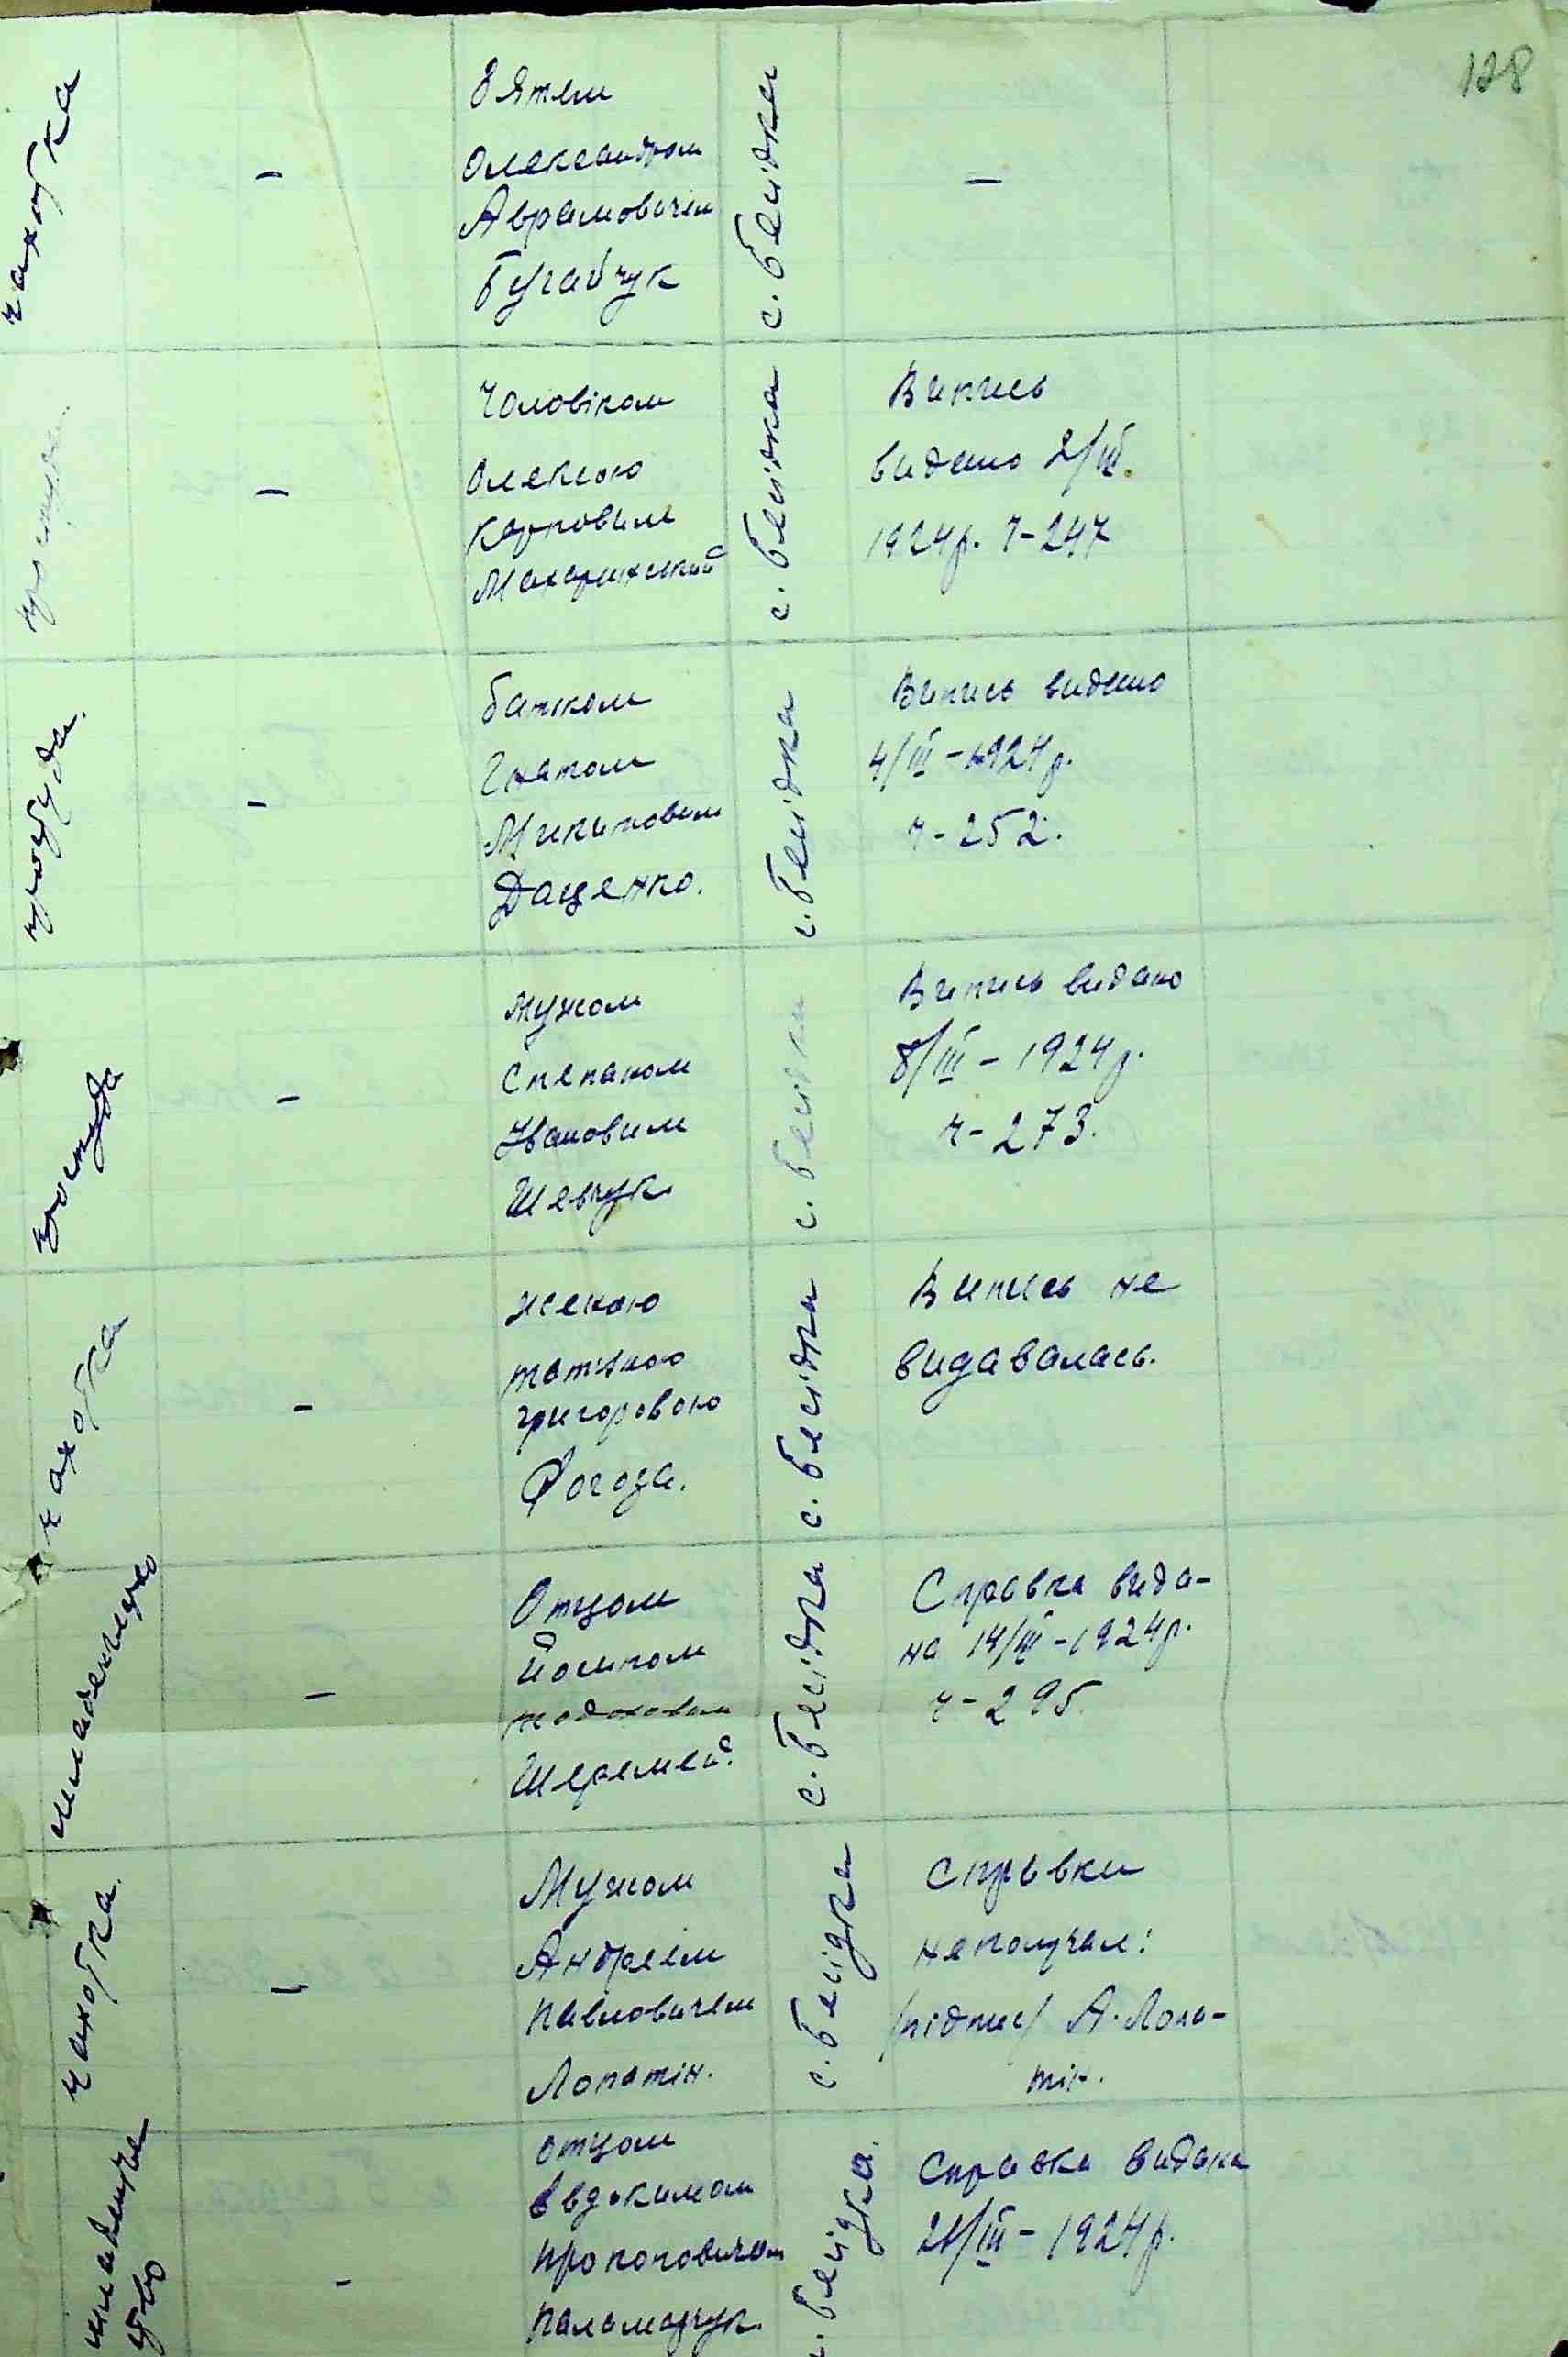 128
чахотка
–
Зятем
Олександром
Аврамовичем
Бугайчук
с. Бесідка
–
простуда
–
Чоловіком
Олексою
Карповим
с. Бесідка
Випись
видано 2/III.
1924р. Ч-247
простуда.
–
батьком
Гнатом
Микитовим
Даценко.
с. Бесідка
Випись видано
4/III – 1924р.
ч-252.
простуда
–
мужом
Степаном
Ивановим
Шевчук
с. Бесідка
Випись видано
8/III – 1924р.
ч-273.
чахотка
–
женою
татяною
григоровою
Рогоза.
с. Бесідка
Випись не
видавалась.
–
Отцом
Йосипом
Шеремей.
с. Бесідка
Справка вида-
на 14/III – 1924р.
ч-295.
чахотка.
–
Мужом
Андреем
Павловичем
Лопатін.
с. Бесідка
Справки
неполучал:
/підпис/ А. Лопа-
тін.
младенче
ство
–
отцом
Евдокимом
Прокоповичом
Паламарчук.
с. Бесідка.
Справка видана
21/III – 1924р.